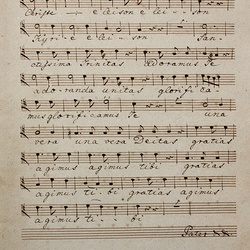 Christe e leison e lei - son
Kyri - e e lei - son San-
ctissima Trinitas adoramus Te
ado-randa unitas glorifi ca-
mus glorificamus Te una
vera una vera Deitas gratias
agimus agimus tibi gratias
agimus ti - bi gratias agimus
agimus ti - - bi
Pater